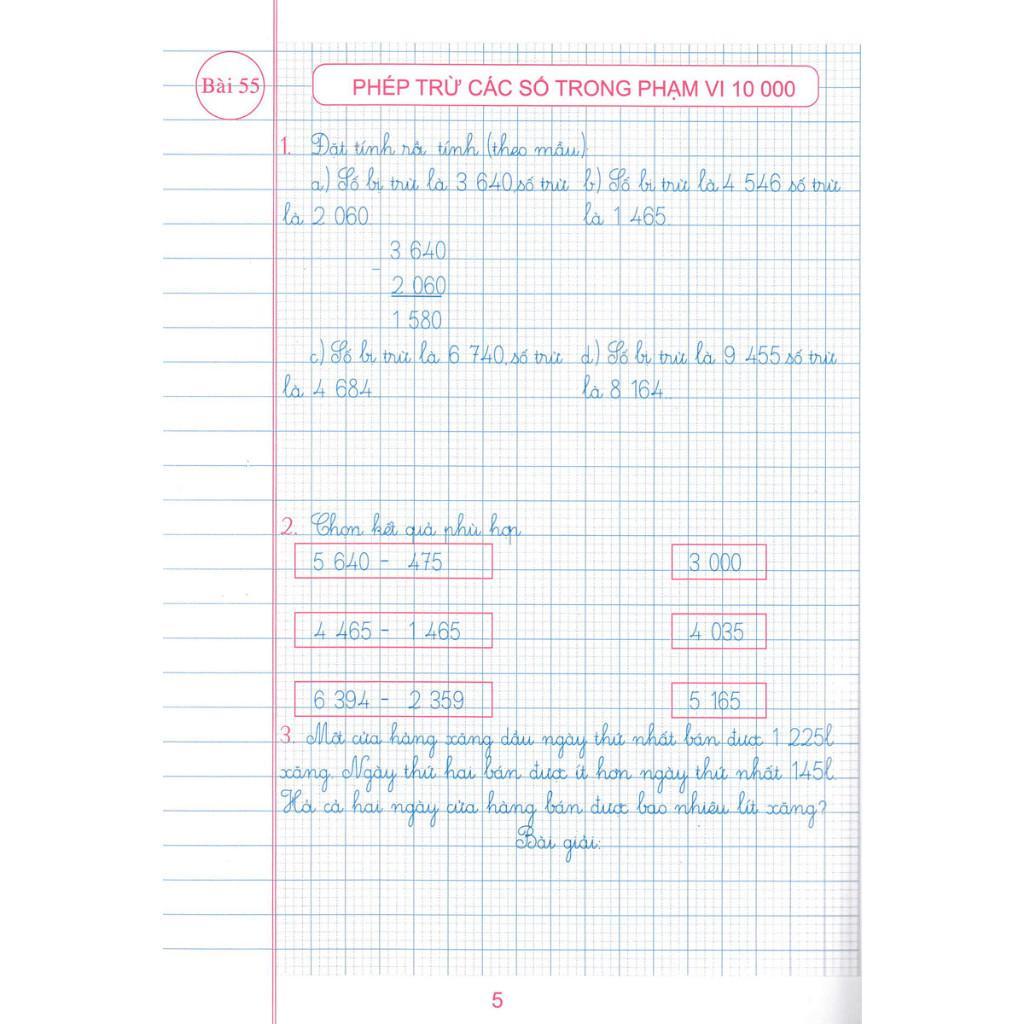 Bài 55
PHÉP TRỪ CÁC SỐ TRONG PHẠM VI 10 000
1. Đặt tính rồi tính (theo mẫu)
a) Số bị trừ là 3 640, số trừ b) Số bị trừ là 4 546 số trừ
là 2 060 là 1 465
3 640
-
2 060
1 580
c) Số bị trừ là 6 740, số trừ d) Số bị trừ là 9 455 số trừ
là 4 684 là 8 164
2. Chọn kết quả phù hợp
5 640 - 475 3 000
4 465 - 1 465 4 035
6 394 - 2 359 5 165
3. Một cửa hàng xăng dầu ngày thứ nhất bán được 1 225l
xăng. Ngày thứ hai bán được ít hơn ngày thứ nhất 145l.
Hỏi cả hai ngày cửa hàng bán được bao nhiêu lít xăng?
Bài giải:
5